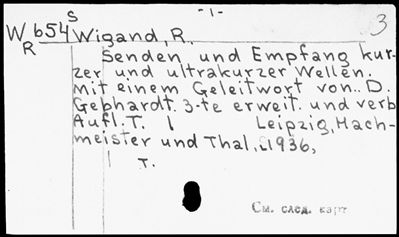 -1-
S
W 654 Wigand, R. 3
R
Senden und Empfang kur-
zer und ultrakurzer Wellen.
Mit einem Geleitwort von.. D.
Gebhardt. 3-te erweit. und verb
Aufl. T. | Leipzig, Hach-
meister und Thal, 1936,
T.
См. след. карт